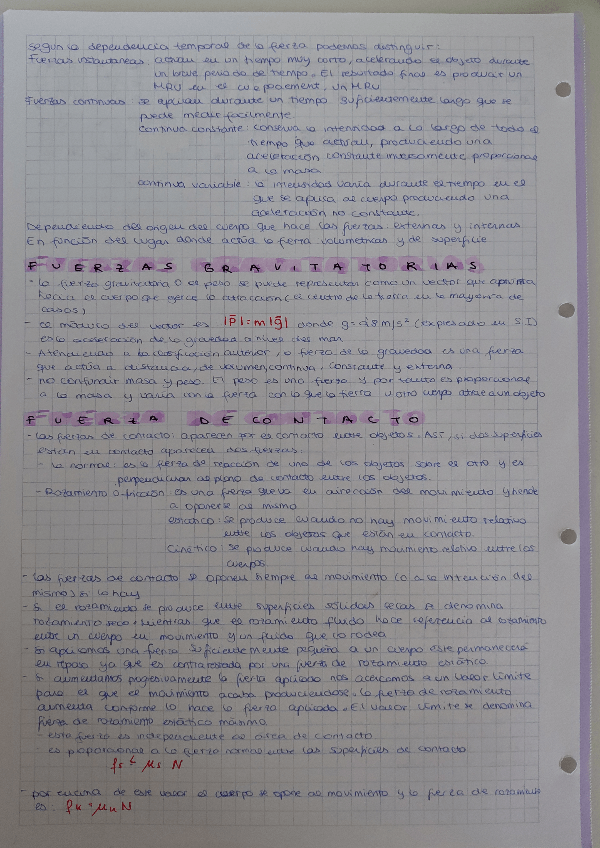 según la dependencia temporal de la fuerza podemos distinguir:
Fuerzas instantáneas: actúan en un tiempo muy corto, acelerando el objeto durante
un breve periodo de tiempo. El resultado final es producir un
MRU en el cuerpo
Fuerzas continuas: se aplican durante un tiempo suficientemente largo que se
puede medir facilmente.
continua constante: conserva la intensidad a lo largo de todo el
tiempo que actúan, produciendo una
aceleración constante inversamente proporcional
a la masa
continua variable: la intensidad varía durante el tiempo en el
que se aplica al cuerpo produciendo una
aceleración no constante.
Dependiendo del origen del cuerpo que hace las fuerzas: externas y internas
En función del lugar donde actúa la fuerza: volumétricas y de superficie
FUERZAS GRAVITATORIAS
- la fuerza gravitatoria o el peso se puede representar como un vector que apunta
hacia el cuerpo que ejerce la atracción (el centro de la tierra en la mayoría de
casos)
- el módulo del vector es |P| = m|g| donde g = 9,8 m/s² (expresado en SI)
es la aceleración de la gravedad a nivel del mar
- Atendiendo a la clasificación anterior, la fuerza de la gravedad es una fuerza
que actúa a distancia, de volumen, continua, constante y externa
- no confundir masa y peso. El peso es una fuerza y por tanto es proporcional
a la masa y varía con la fuerza con la que la tierra u otro cuerpo atrae a un objeto
FUERZA DE CONTACTO
- las fuerzas de contacto: aparecen por el contacto entre objetos. Así, si dos superficies
están en contacto aparecen dos fuerzas:
- la normal: es la fuerza de reacción de uno de los objetos sobre el otro y es
perpendicular al plano de contacto entre los objetos.
- Rozamiento o fricción: es una fuerza que va en dirección del movimiento y tiende
a oponerse al mismo
estático: se produce cuando no hay movimiento relativo
entre los objetos que están en contacto.
Cinético: se produce cuando hay movimiento relativo entre los
cuerpos
- las fuerzas de contacto se oponen siempre al movimiento (o a la intención del
mismo) si lo hay
- Si el rozamiento se produce entre superficies sólidas secas se denomina
rozamiento seco mientras que el rozamiento fluido hace referencia al rozamiento
entre un cuerpo en movimiento y un fluido que lo rodea
- Si aplicamos una fuerza suficientemente pequeña a un cuerpo este permanecerá
en reposo ya que es contrarrestada por una fuerza de rozamiento estático.
- Si aumentamos progresivamente la fuerza aplicada nos acercamos a un valor límite
para el que el movimiento acaba produciendose. la fuerza de rozamiento
aumenta conforme lo hace la fuerza aplicada. El valor límite se denomina
fuerza de rozamiento estático máximo.
- esta fuerza es independiente al área de contacto
- es proporcional a la fuerza normal entre las superficies de contacto
fs ≤ μs N
- por encima de este valor el cuerpo se opone al movimiento y la fuerza de rozamiento
es: fk = μk N